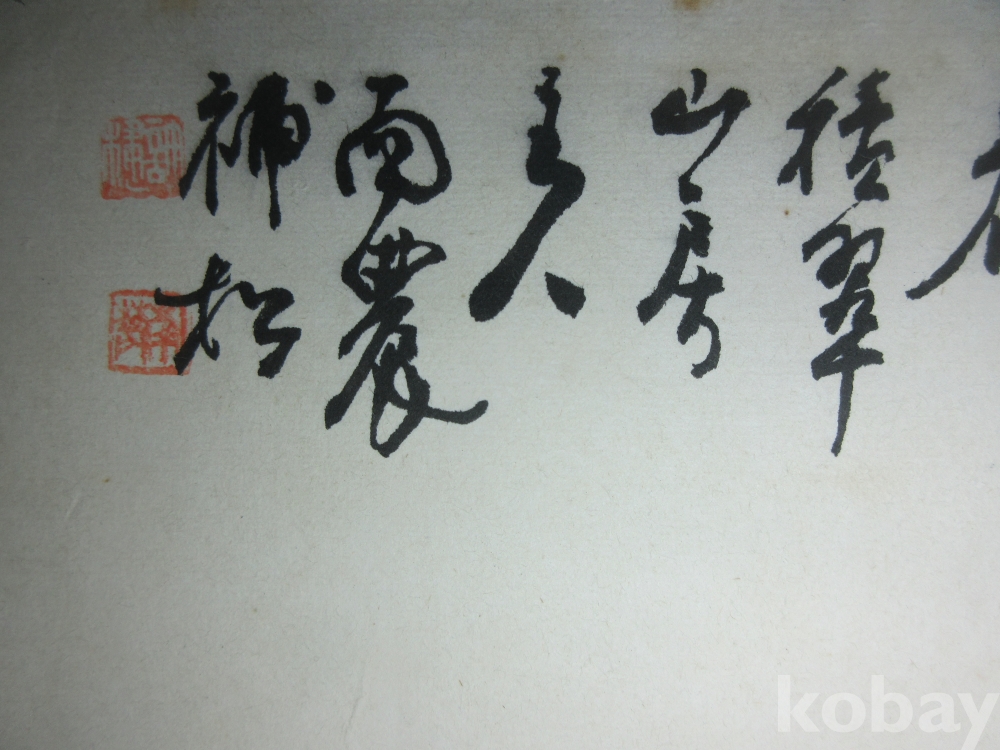 積翠
山居
主人
雨農
補松
kobay